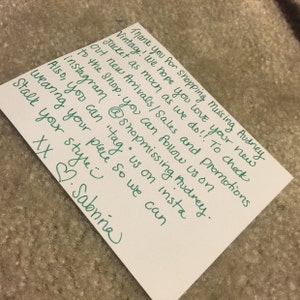 Thank you for shopping Missing Audrey
Vintage! We hope you love your new
jacket as much as we do!! To check
out new Arrivals / Sales and Promotions
to the shop, you can follow us on
instagram @shopmissingaudrey.
Also, you can "tag" us on insta
wearing your piece so we can
stalk your style :)
XX ♡ Sabrina